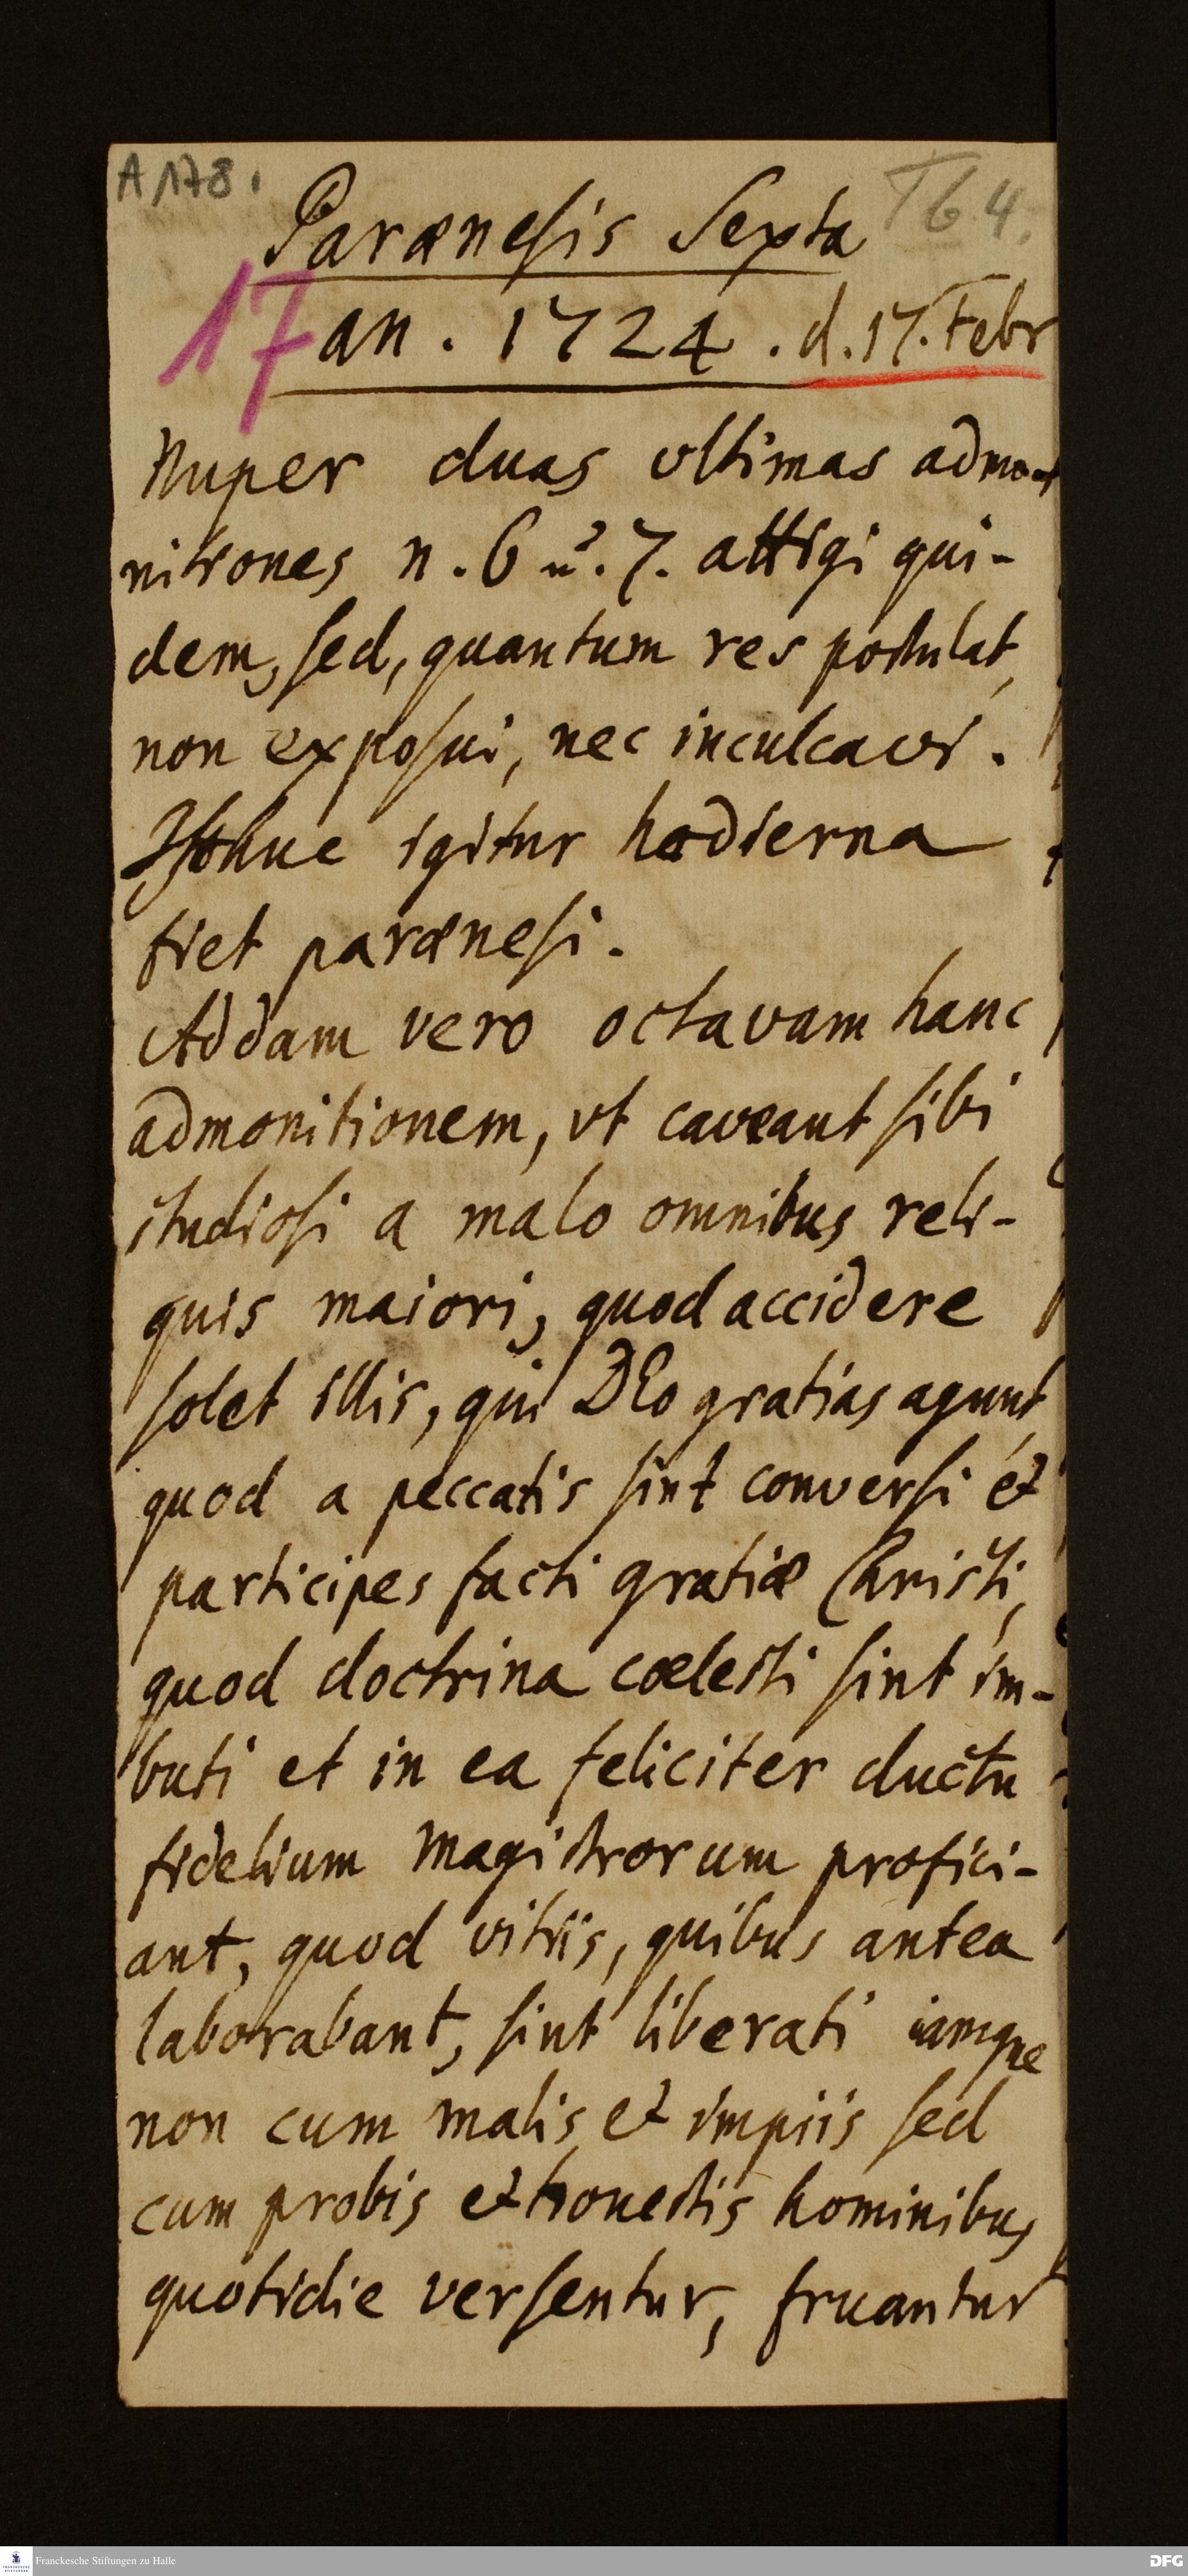 A 178.
T 64.
Parænesis Sexta
17
an. 1724. d. 17. Febr
Nuper duas vltimas admo-
nitiones n. 6 u. 7. attigi qui-
dem, sed, quantum res postulat,
non exposui, nec inculcavi.
Isthuc igitur hodierna
fiet parænesi.
Addam vero octavam hanc
admonitionem, vt caveant sibi
studiosi a malo omnibus reli-
quis maiori, quod accidere
solet illis, qui DEo gratias agunt,
quod a peccatis sint conversi et
participes facti gratiæ Christi,
quod doctrina cœlesti sint im-
buti et in ea feliciter ductu
fidelium Magistrorum profici-
ant, quod vitiis, quibus antea
laborabant, sint liberati iamque
non cum malis et impiis sed
cum probis et honestis hominibus
quotidie versentur, fruantur
Franckesche Stiftungen zu Halle
DFG